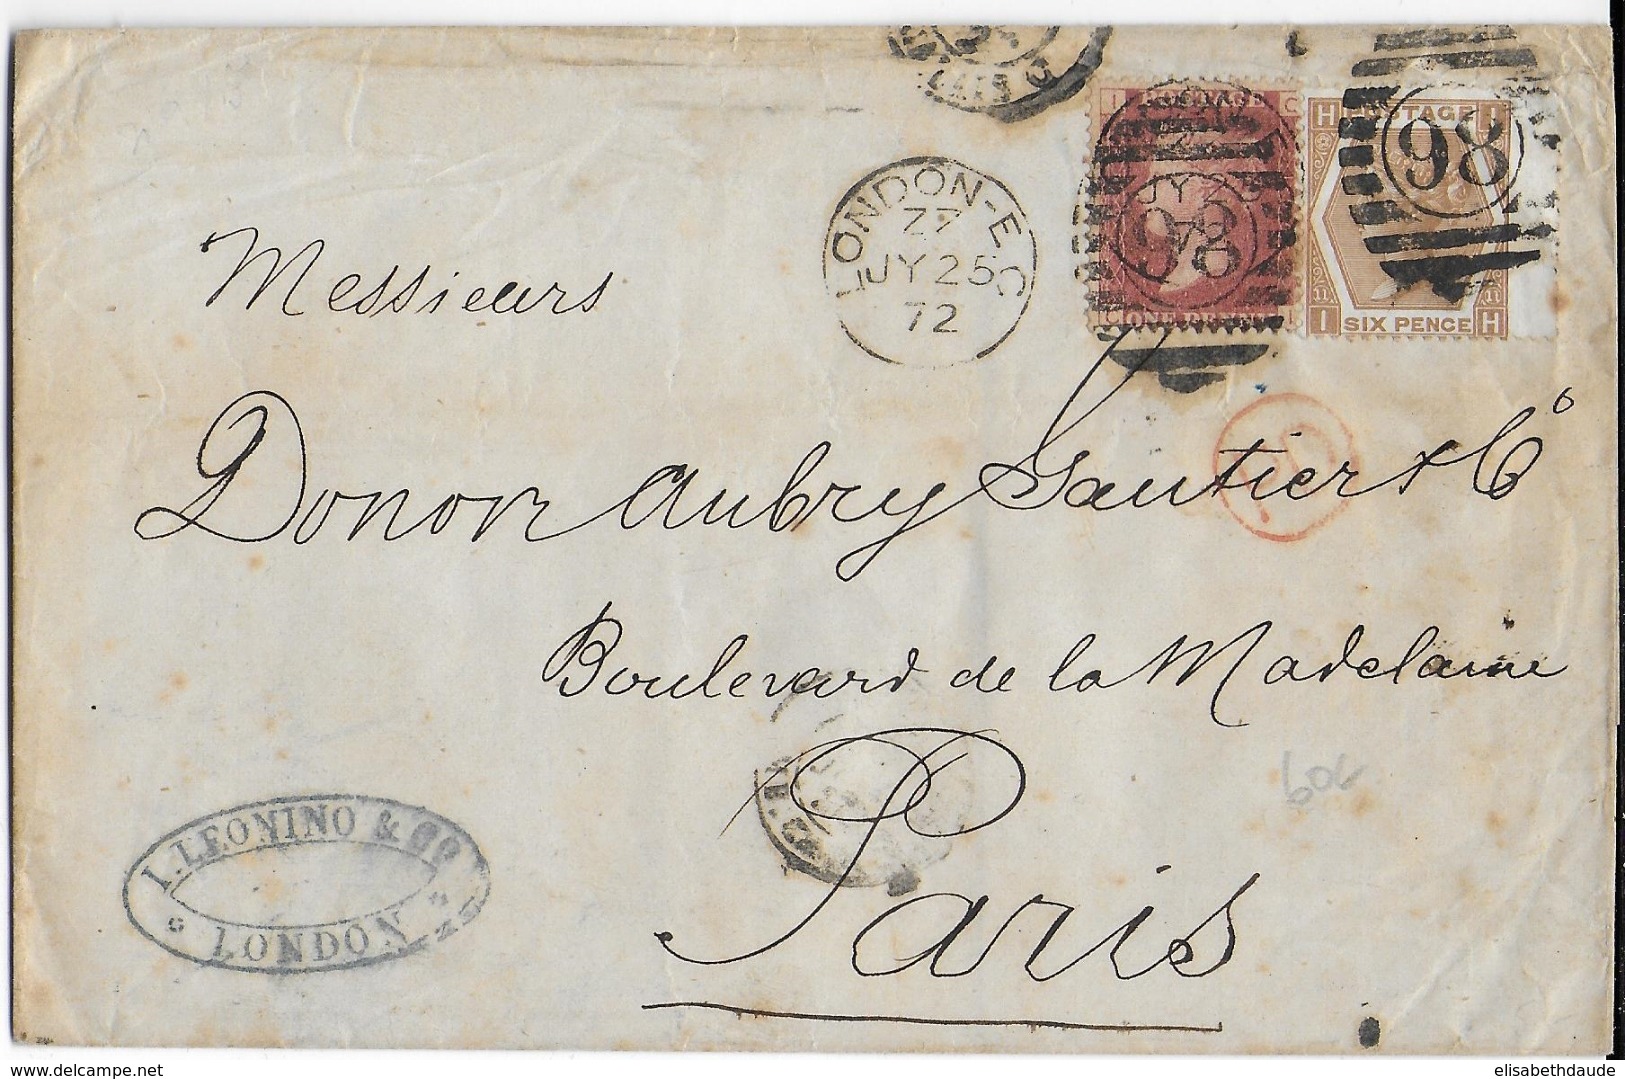 POSTAGE
ONE PENNY
H POSTAGE I
98
98
I SIX PENCE H
LONDON-EC
Z7
JY 25
72
Messieurs
Donon Aubry Gautier & Co
Boulevard de la Madelaine
Paris
I. LEONINO & CO
LONDON
60€
elisabethdaude